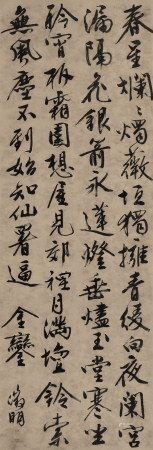 春星爛〻燭薇垣獨擁青綾向夜闌宮
漏隔花銀箭永蓮燈垂燼玉堂寒坐
聆宵柝霜圍想屋見郊禋月滿壇鈴索
無風塵不到始知仙署逼金鑾 徵明